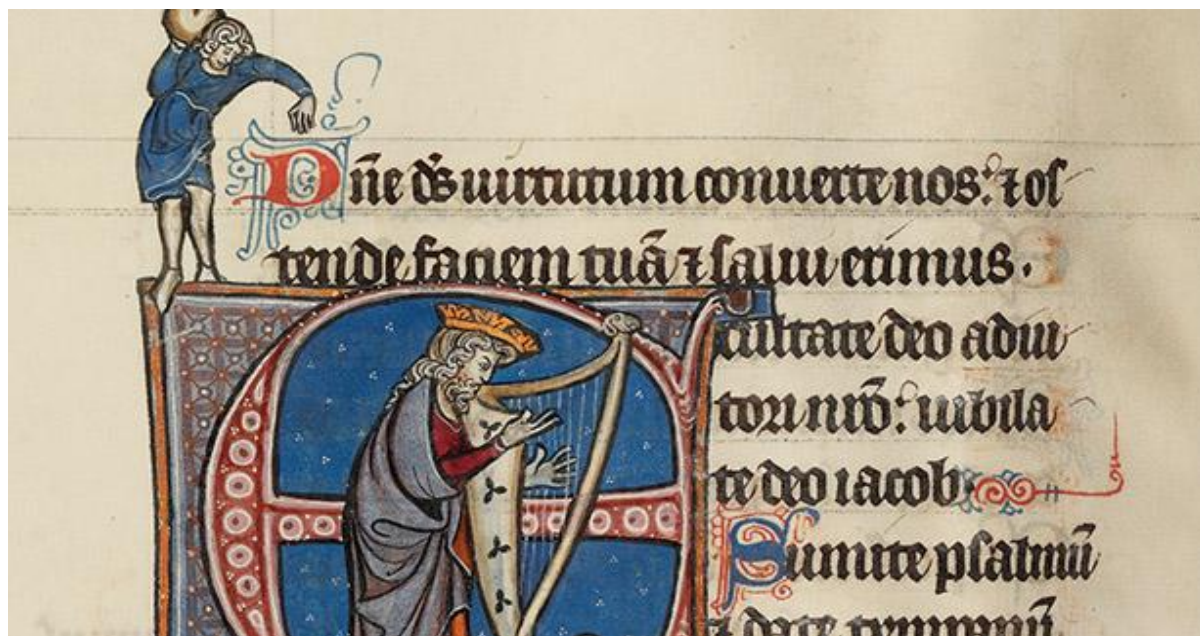 Dñe ds̄ uirtutum conuerte nos: ⁊ oſ
tende faciem tuā ⁊ ſalui erimus.
Exultate deo adiu
tori nrō: iubila
te deo iacob
Sumite pſalmū
⁊ date tympanū